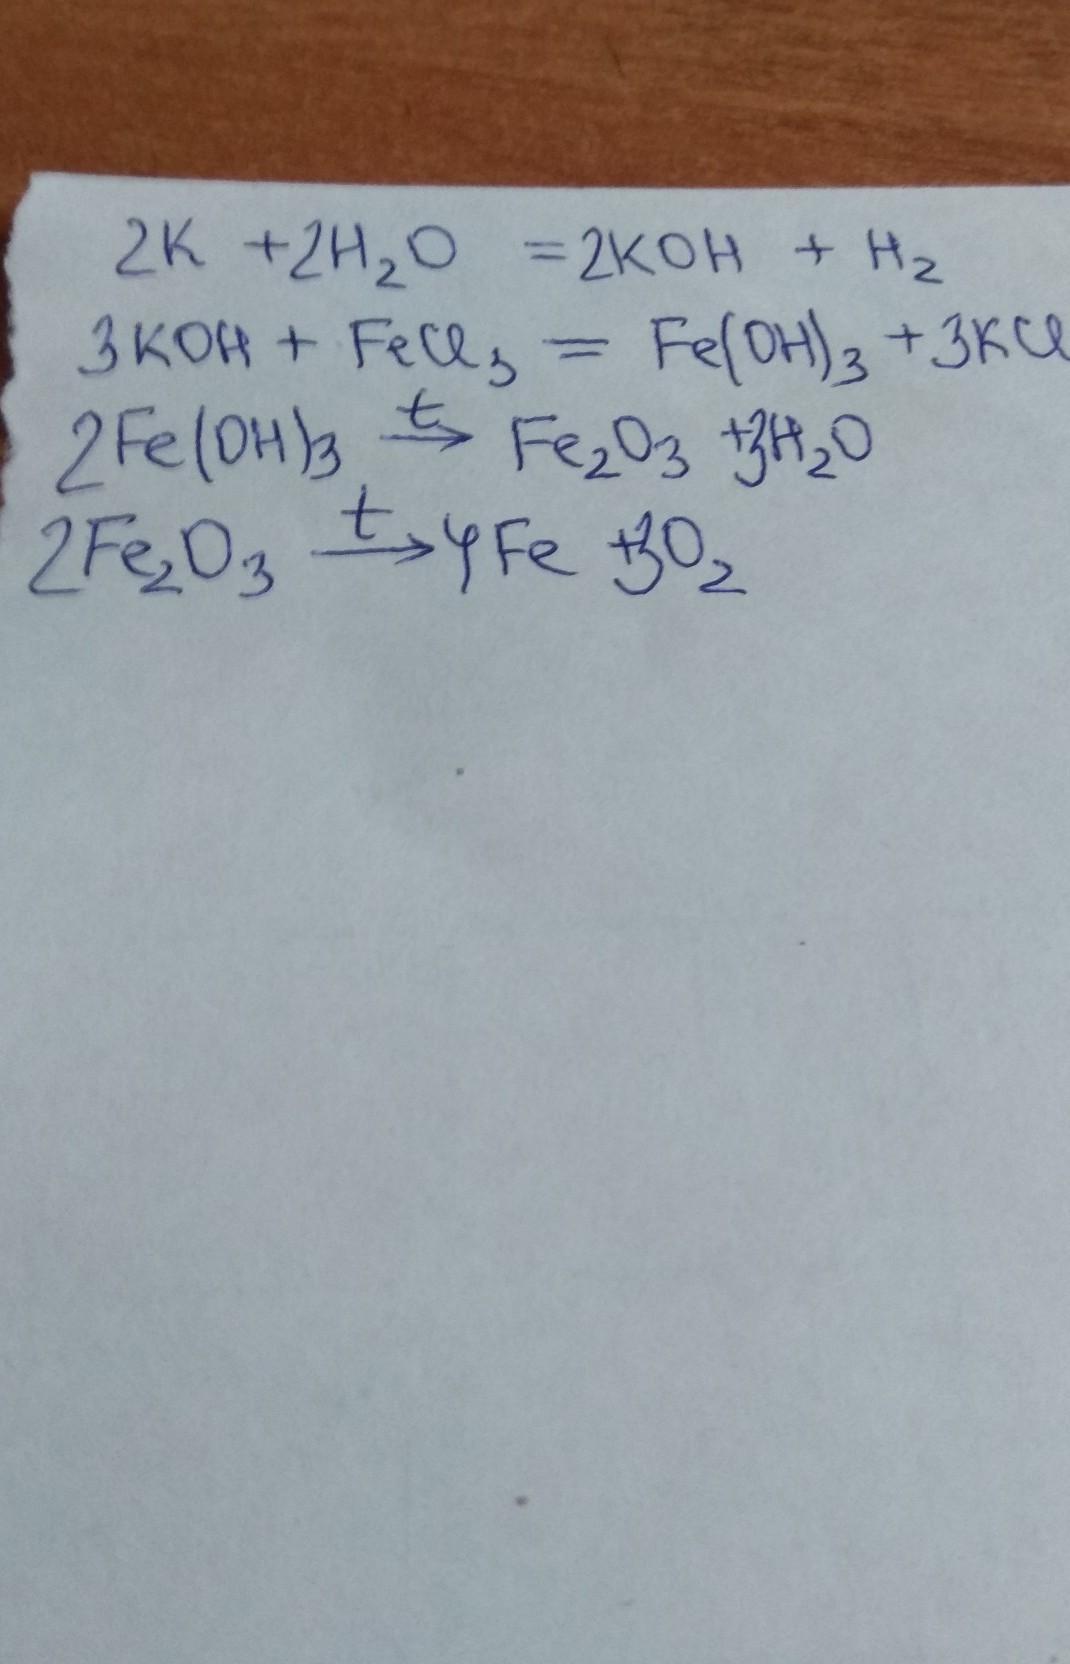 2K + 2H₂O = 2KOH + H₂
3KOH + FeCl₃ = Fe(OH)₃ + 3KCl
2Fe(OH)₃ →ᵗ Fe₂O₃ + 3H₂O
2Fe₂O₃ →ᵗ 4Fe + 3O₂